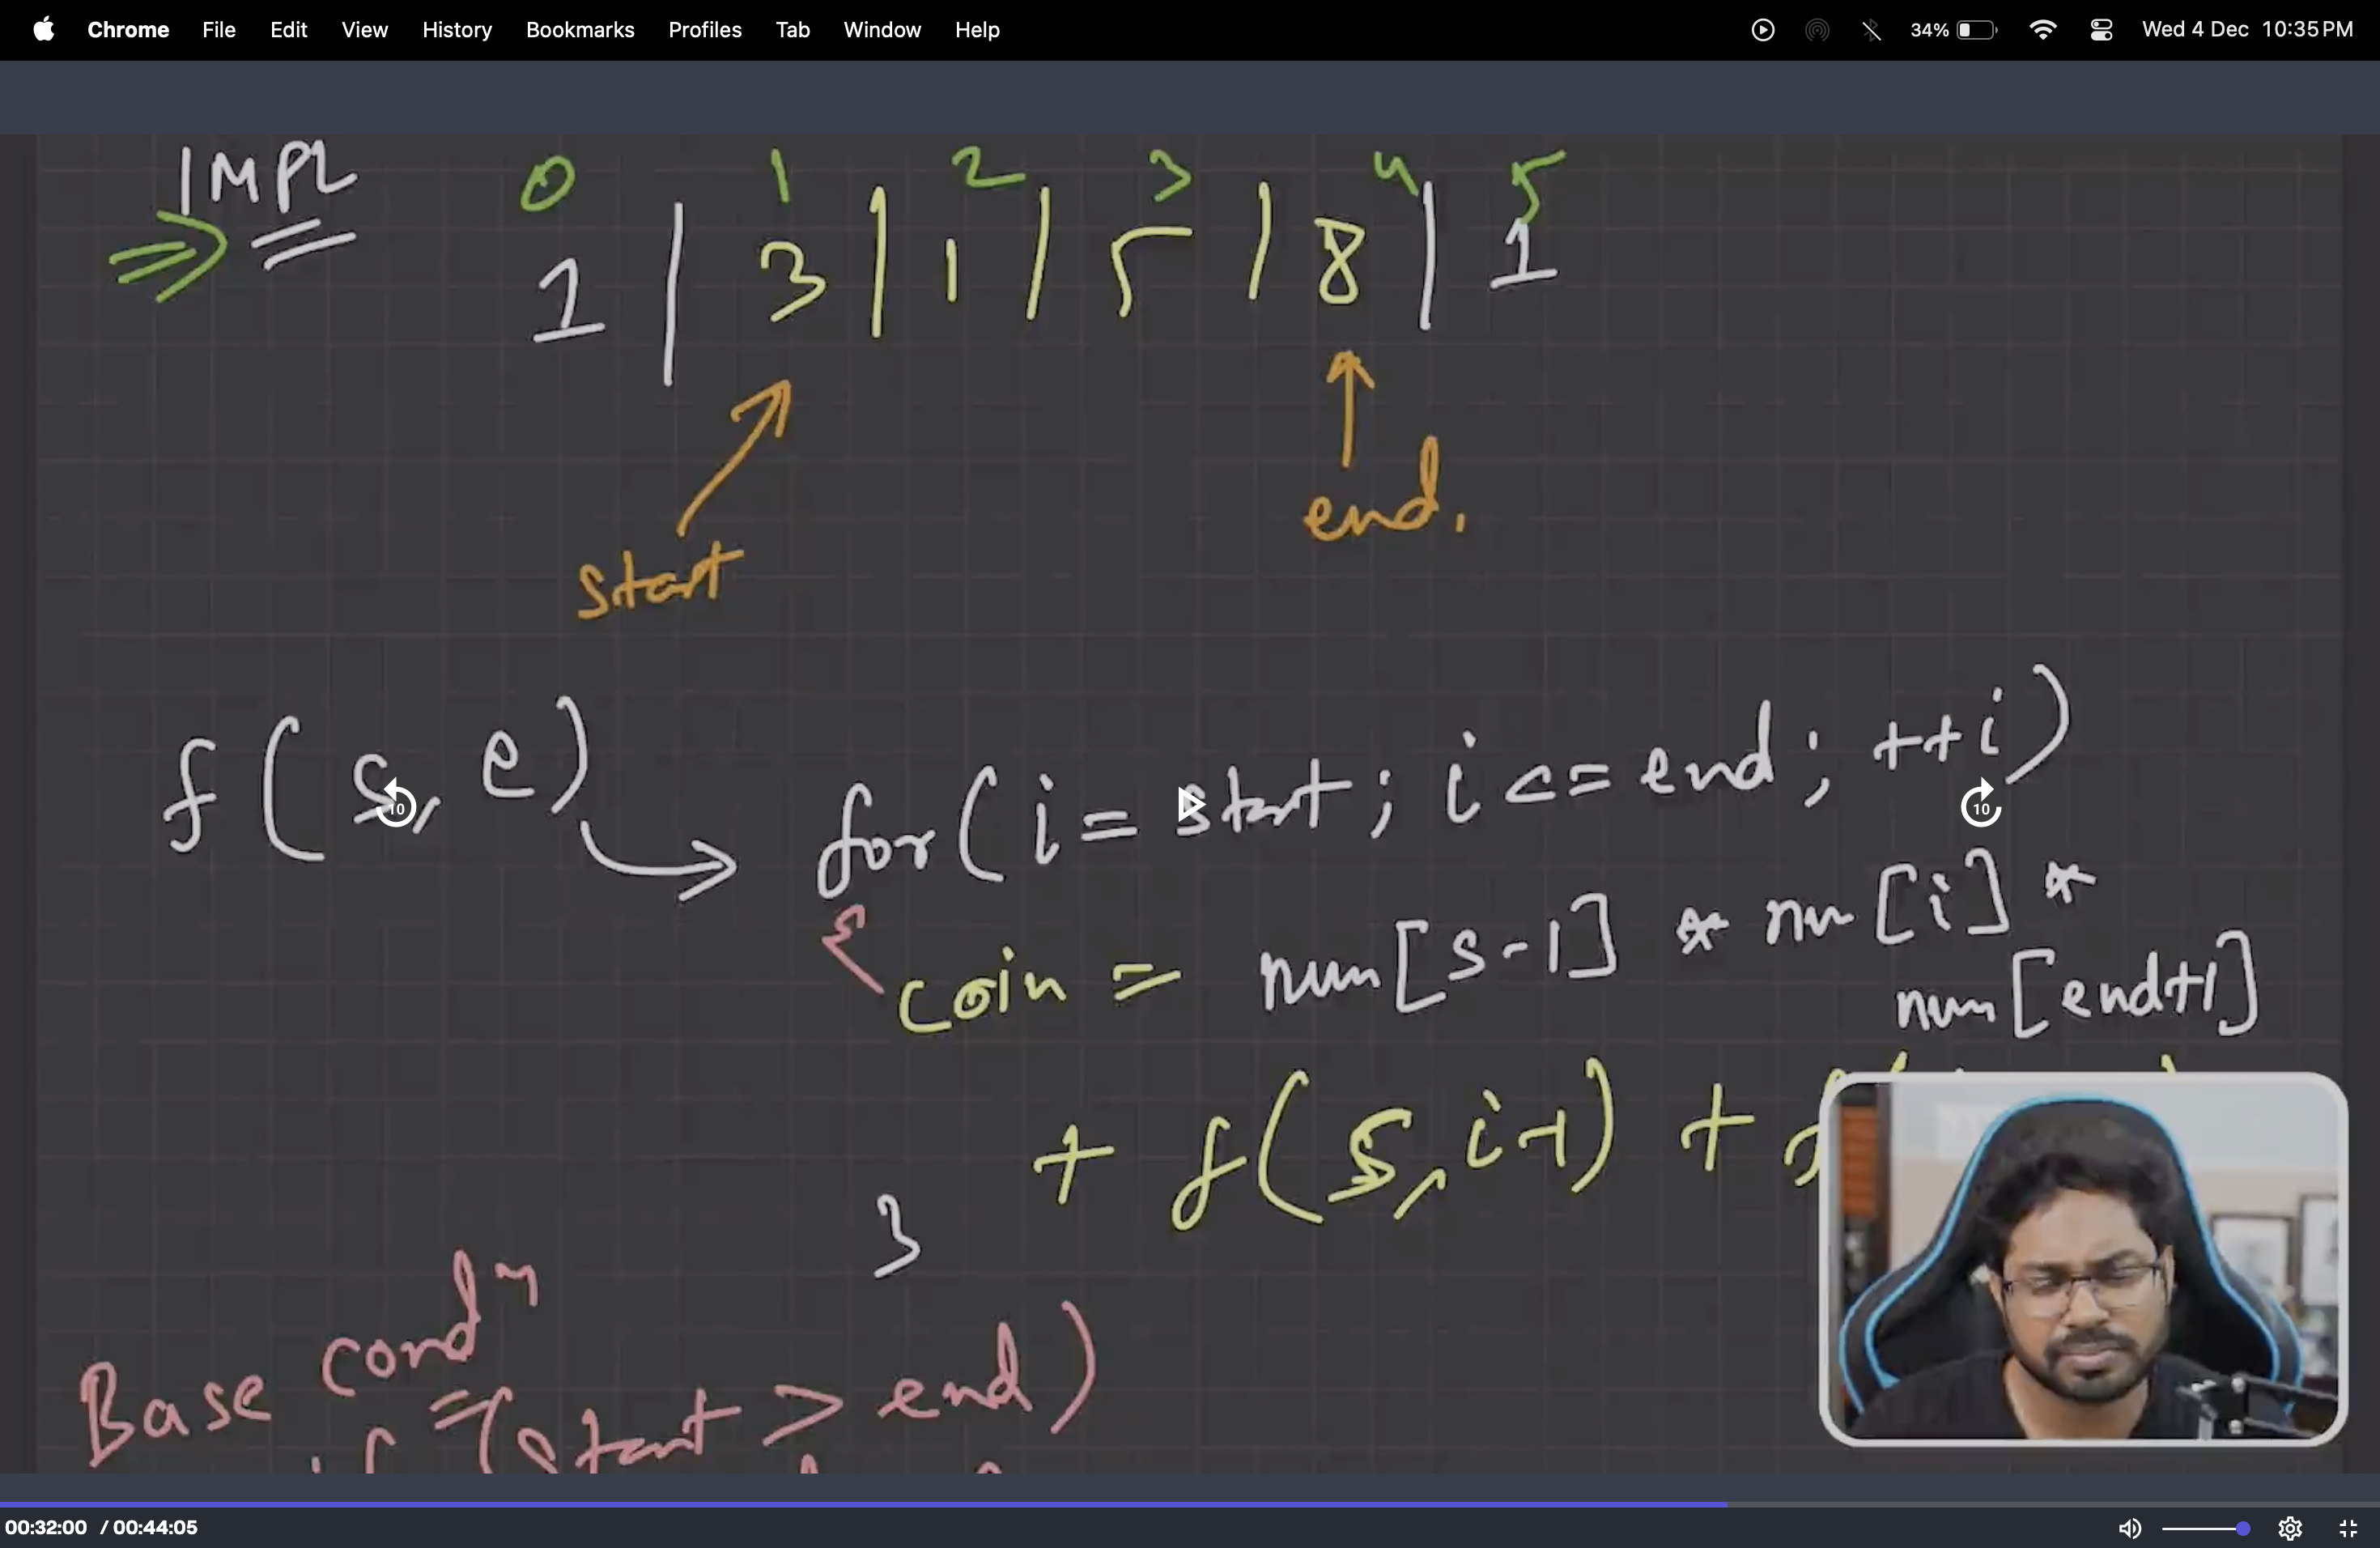 Chrome File Edit View History Bookmarks Profiles Tab Window Help 34% Wed 4 Dec 10:35 PM
IMPL 0 1 2 3 4 5
1 | 3 | 1 | 5 | 8 | 1
start end.
f(s, e) for(i = start; i <= end; ++i)
{
coin = num[s-1] * nu[i] *
num[end+1]
+ f(s, i-1) +
}
Base condn
if (start > end)
10 10
00:32:00 / 00:44:05